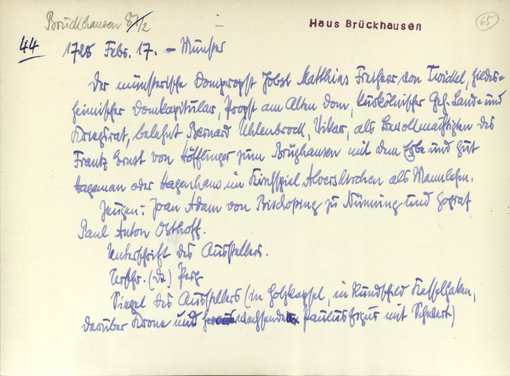 Bruckhausen
Haus Brückhausen
65
44
1728 Febr. 17. – Münster
Der münsterische Dompropst Jobst Matthias Freiherr von Twickel, hildes-
heimischer Domkapitular, Propst am Alten Dom, Kurkölnischer Geh. Land- und
Kriegsrat, belehnt Bernard Uhlenbrock, Vikar, als Bevollmächtigten des
Frantz Ernst von Höfflinger zum Brughausen mit dem Erbe und Gut
Hageman oder Hagenhaus im Kirchspiel Alverskirchen als Mannlehn.
Zeugen: Joan Adam von zu Nünning und Gograf
Paul Anton Osthoff.
Unterschrift des Ausstellers.
(dt) Perg
Siegel des Ausstellers (in Holzkapsel, im Rundschild Kesselhaken,
darüber Krone und wachsende Paulusfigur mit Schwert)